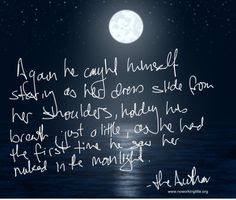 Again he caught himself
staring as her dress slide from
her shoulders, holding his
breath just a little, as he had
the first time he saw her
naked in the moonlight.
- the Author
www.noworkingtitle.org